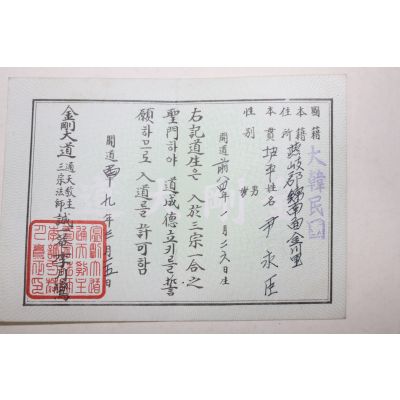 國籍 大韓民国
本籍
住所 燕岐郡 錦南面 金川里
本貫 坡平 姓名 尹永臣
性別 男
開道 前 年 一月二六日生
右記道生은 入於三宗一合之
聖門하야 道成德立키를 誓
願하므로 入道를 許可함
開道 九年 月 五日
金剛大道 通天敎主
三宗法師 誠敬 李月鸞